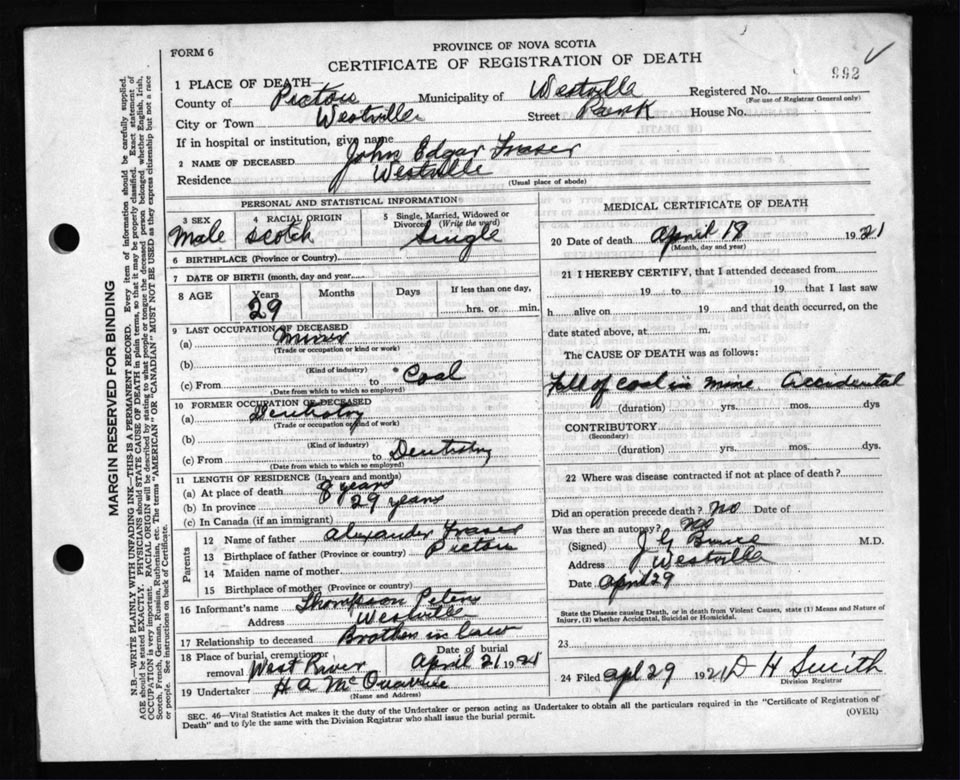 PROVINCE OF NOVA SCOTIA
FORM 6
CERTIFICATE OF REGISTRATION OF DEATH
992
MARGIN RESERVED FOR BINDING
N.B.—WRITE PLAINLY WITH UNFADING INK—THIS IS A PERMANENT RECORD. Every item of information should be carefully supplied.
AGE should be stated EXACTLY. PHYSICIANS should STATE CAUSE OF DEATH in plain terms, so that it may be properly classified. Exact statement of
OCCUPATION is very important. RACIAL ORIGIN will be described by stating to what people or tongue the deceased person belonged whether English, Irish,
Scotch, French, German, Russian, Ruthenian, etc. The terms "AMERICAN" OR "CANADIAN" MUST NOT BE USED as they express citizenship but not a race
or people. See instructions on back of Certificate.
1 PLACE OF DEATH—
County of Pictou Municipality of Westville Registered No.
(For use of Registrar General only)
City or Town Westville Street Park House No.
If in hospital or institution, give name
2 NAME OF DECEASED John Edgar Fraser
Residence Westville
(Usual place of abode)
PERSONAL AND STATISTICAL INFORMATION
3 SEX Male 4 RACIAL ORIGIN Scotch 5 Single, Married, Widowed or Divorced (Write the word) Single
6 BIRTHPLACE (Province or Country)
7 DATE OF BIRTH (month, day and year)
8 AGE Years 29 Months Days If less than one day, hrs. or min.
9 LAST OCCUPATION OF DECEASED
(a) Miner
(Trade or occupation or kind or work)
(b)
(Kind of industry)
(c) From to Coal
(Date from which to which so employed)
10 FORMER OCCUPATION OF DECEASED
(a) Dentistry
(Trade or occupation or kind of work)
(b)
(Kind of industry)
(c) From to Dentistry
(Date from which to which so employed)
11 LENGTH OF RESIDENCE (In years and months)
(a) At place of death 8 years
(b) In province 29 years
(c) In Canada (if an immigrant)
Parents
12 Name of father Alexander Fraser
13 Birthplace of father (Province or country) Pictou
14 Maiden name of mother
15 Birthplace of mother (Province or country)
16 Informant's name Thompson Peters
Address Westville
17 Relationship to deceased Brother in law
18 Place of burial, cremation, removal West River Date of burial April 21 1921
19 Undertaker H A McQuarrie
(Name and Address)
MEDICAL CERTIFICATE OF DEATH
20 Date of death April 18 1921
(Month, day and year)
21 I HEREBY CERTIFY, that I attended deceased from
19 to 19 that I last saw
h alive on 19 and that death occurred, on the
date stated above, at m.
The CAUSE OF DEATH was as follows:
Fall of coal in mine. Accidental
(duration) yrs. mos. dys
CONTRIBUTORY
(Secondary)
(duration) yrs. mos. dys.
22 Where was disease contracted if not at place of death?
Did an operation precede death? No Date of
Was there an autopsy? No
(Signed) J G M.D.
Address Westville
Date April 29
State the Disease causing Death, or in death from Violent Causes, state (1) Means and Nature of
Injury, (2) whether Accidental, Suicidal or Homicidal.
23
24 Filed Apl 29 1921 D H Smith
Division Registrar
SEC. 46—Vital Statistics Act makes it the duty of the Undertaker or person acting as Undertaker to obtain all the particulars required in the "Certificate of Registration of
Death" and to fyle the same with the Division Registrar who shall issue the burial permit.
(OVER)